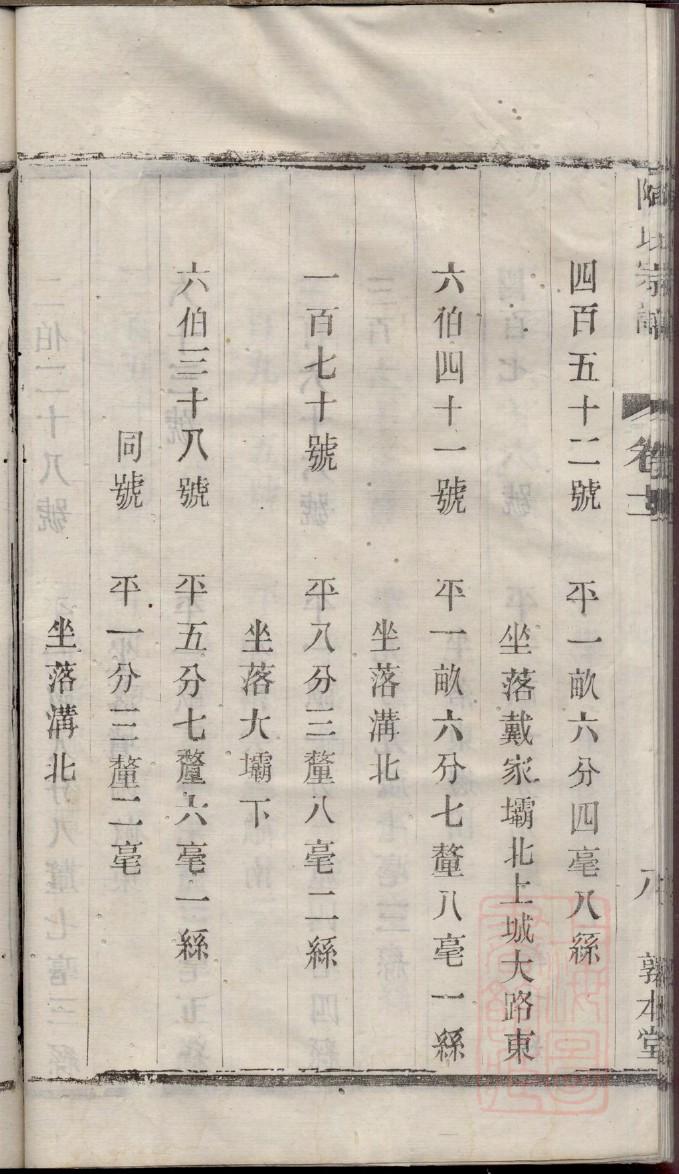 四百五十二號　平一畝六分四毫八絲
坐落戴家壩北上城大路東
六伯四十一號　平一畝六分七釐八毫一絲
坐落溝北
一百七十號　平八分三釐八毫二絲
坐落大壩下
六伯三十八號　平五分七釐六毫一絲
同號　平一分三釐二毫
坐落溝北
氏宗譜
卷
八
敦本堂